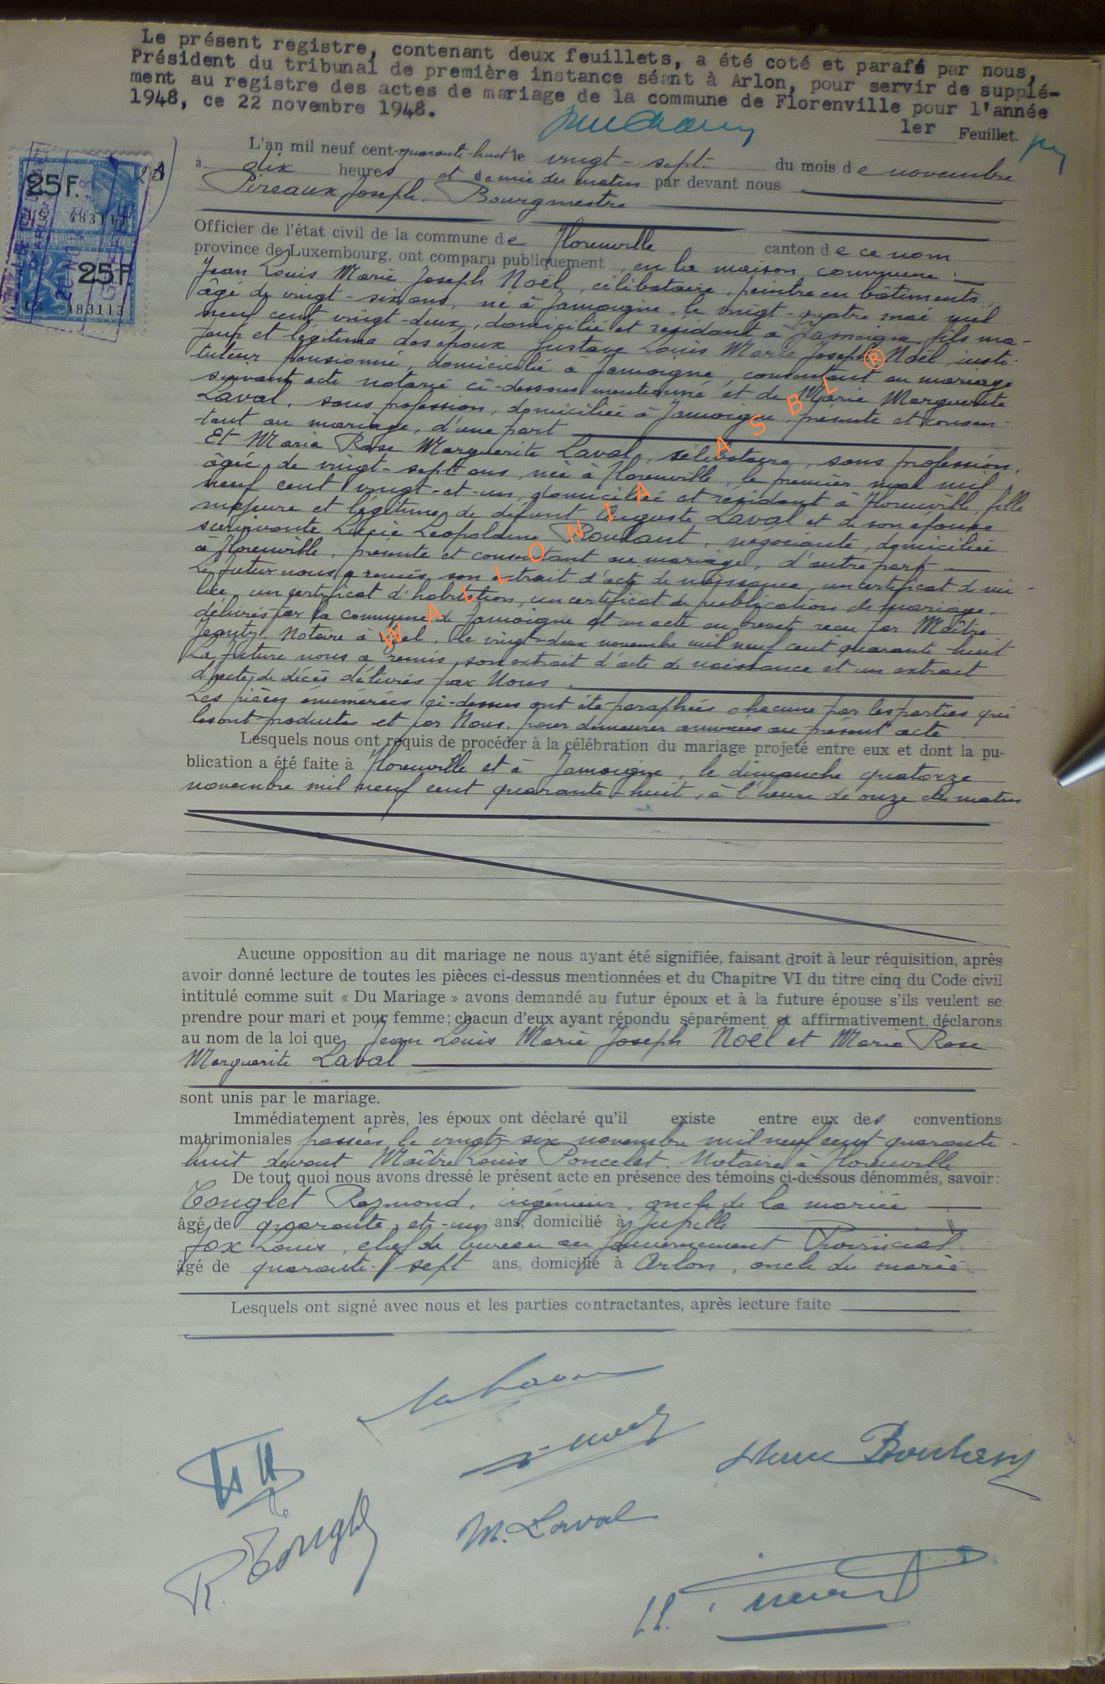 Le présent registre, contenant deux feuillets, a été coté et parafé par nous,
Président du tribunal de première instance séant à Arlon, pour servir de supplé-
ment au registre des actes de mariage de la commune de Florenville pour l'année
1948, ce 22 novembre 1948.
1er Feuillet.
25F.
483113
25F
483113
L'an mil neuf cent quarante-huit le vingt-sept du mois de novembre
à dix heures et demie du matin par devant nous
Pireaux Joseph, Bourgmestre
Officier de l'état civil de la commune de Florenville canton de ce nom
province de Luxembourg, ont comparu publiquement en la maison commune :
Jean Louis Marie Joseph Noël, célibataire, peintre en bâtiments,
âgé de vingt-six ans, né à Jamoigne le vingt-quatre mai mil
neuf cent vingt-deux, domicilié et résidant à Jamoigne, fils ma-
jeur et légitime des époux Gustave Louis Marie Joseph Noël, insti-
tuteur pensionné, domicilié à Jamoigne, consentant au mariage
suivant acte notarié ci-dessous mentionné et de Marie Marguerite
Laval, sans profession, domiciliée à Jamoigne, présente et consen-
tant au mariage, d'une part
Et Maria Rose Marguerite Laval, célibataire, sans profession,
âgée de vingt-sept ans, née à Florenville, le premier mai mil
neuf cent vingt-et-un, domiciliée et résidant à Florenville, fille
majeure et légitime de défunt Auguste Laval et de son épouse
survivante Lucie Léopoldine, négociante, domiciliée
à Florenville, présente et consentant au mariage, d'autre part
Le futur nous a remis son extrait d'acte de naissance, un certificat de mi-
lice, un certificat d'habitation, un certificat de publications de mariage,
délivrés par la commune de Jamoigne et un acte en brevet reçu par Maître
Notaire à, le vingt-deux novembre mil neuf cent quarante-huit
La future nous a remis son extrait d'acte de naissance et un extrait
d'acte de décès délivrés par Nous
Les pièces énumérées ci-dessus ont été paraphées chacune par les parties qui
les ont produites et par Nous, pour demeurer annexées au présent acte
Lesquels nous ont requis de procéder à la célébration du mariage projeté entre eux et dont la pu-
blication a été faite à Florenville et à Jamoigne, le dimanche quatorze
novembre mil neuf cent quarante-huit, à l'heure de onze du matin
Aucune opposition au dit mariage ne nous ayant été signifiée, faisant droit à leur réquisition, après
avoir donné lecture de toutes les pièces ci-dessus mentionnées et du Chapitre VI du titre cinq du Code civil
intitulé comme suit « Du Mariage » avons demandé au futur époux et à la future épouse s'ils veulent se
prendre pour mari et pour femme; chacun d'eux ayant répondu séparément et affirmativement, déclarons
au nom de la loi que Jean Louis Marie Joseph Noël et Maria Rose
Marguerite Laval
sont unis par le mariage.
Immédiatement après, les époux ont déclaré qu'il existe entre eux des conventions
matrimoniales passées le vingt-six novembre mil neuf cent quarante-
huit devant Maître Louis Poncelet, Notaire à Florenville
De tout quoi nous avons dressé le présent acte en présence des témoins ci-dessous dénommés, savoir:
Tonglet Raymond, ingénieur, oncle de la mariée
âgé de quarante-et-un ans, domicilié à Jupille
Fox Louis, chef de bureau au Gouvernement Provincial
âgé de quarante-sept ans, domicilié à Arlon, oncle du marié
Lesquels ont signé avec nous et les parties contractantes, après lecture faite
R. Tonglet
M. Laval
WALLONIA ASBL ®